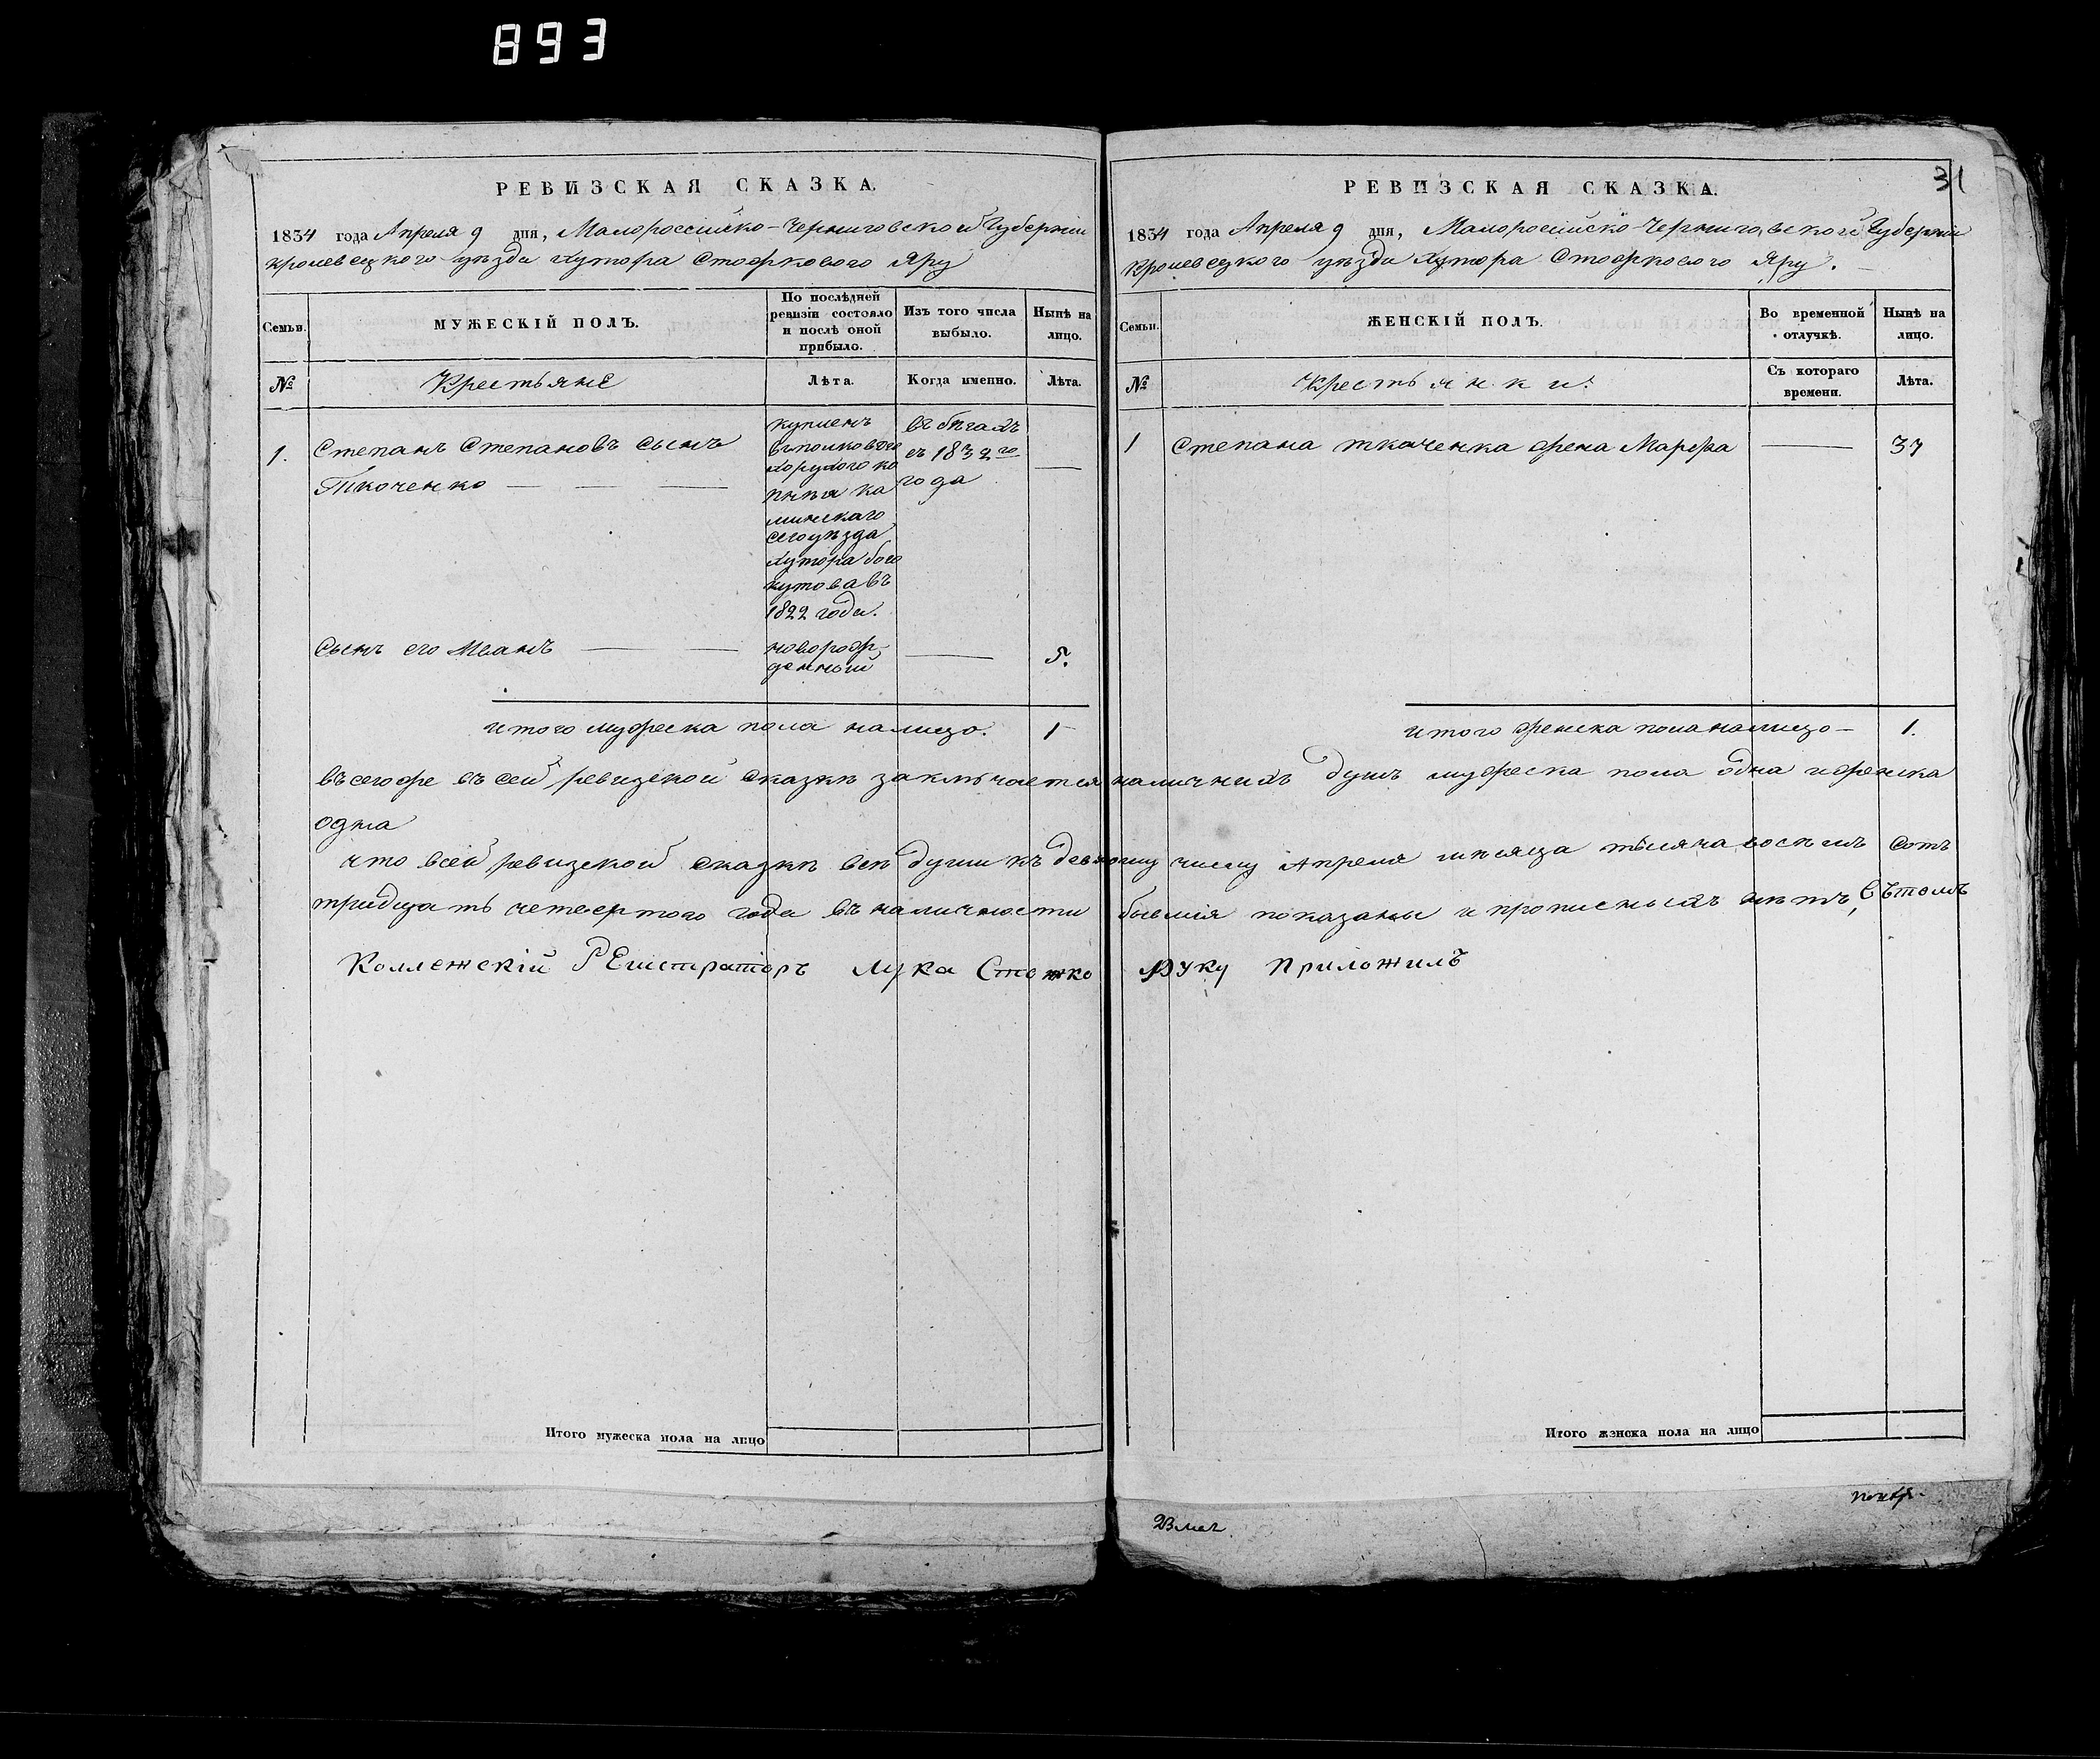 893
РЕВИЗСКАЯ СКАЗКА.
1834 года Апреля 9 дня, Малороссійско-Черниговской Губерніи
кролевецкого уѣзда хутора Стожкового Яру
Семьи.
МУЖЕСКІЙ ПОЛЪ.
По послѣдней
ревизіи состояло
и послѣ оной
прибыло.
Изъ того числа
выбыло.
Нынѣ на
лицо.
№
Крестьяне
Лѣта.
Когда именно.
Лѣта.
1.
Степанъ Степановъ сынъ
Ткаченко
купленъ
хорунжого
сего уѣзда
хутора бого
кутова въ
1822 года.
въ бѣгахъ
съ 1832го
года
Сынъ его Иванъ
новорож-
денный
5.
итого мужеска пола налицо. 1
РЕВИЗСКАЯ СКАЗКА.
31
1834 года Апреля 9 дня, Малоросийско-Черниговской Губернии
Кролевецкого уѣзда хутора Стожкового Яру.
Семьи.
ЖЕНСКІЙ ПОЛЪ.
Во временной
отлучкѣ.
Нынѣ на
лицо.
№
Крестьянки.
Съ котораго
времени.
Лѣта.
1
Степана ткаченка жена Марфа
37
итого женска пола налицо 1.
въсегоже въ сей ревизской сказкѣ заключается наличнихъ душъ мужеска пола одна иженска
одна
что всей ревизской сказкѣ всѣ души къ девятому числу Апреля мѣсяца тысяча восемъ сотъ
тридцать четвертого года въ наличности бывшія показаны и прописныхъ нѣтъ, Вътомъ
Коллежскій РЕгистраторъ Лука Стожко Руку Приложилъ
Итого мужеска пола на лицо
Итого женска пола на лицо